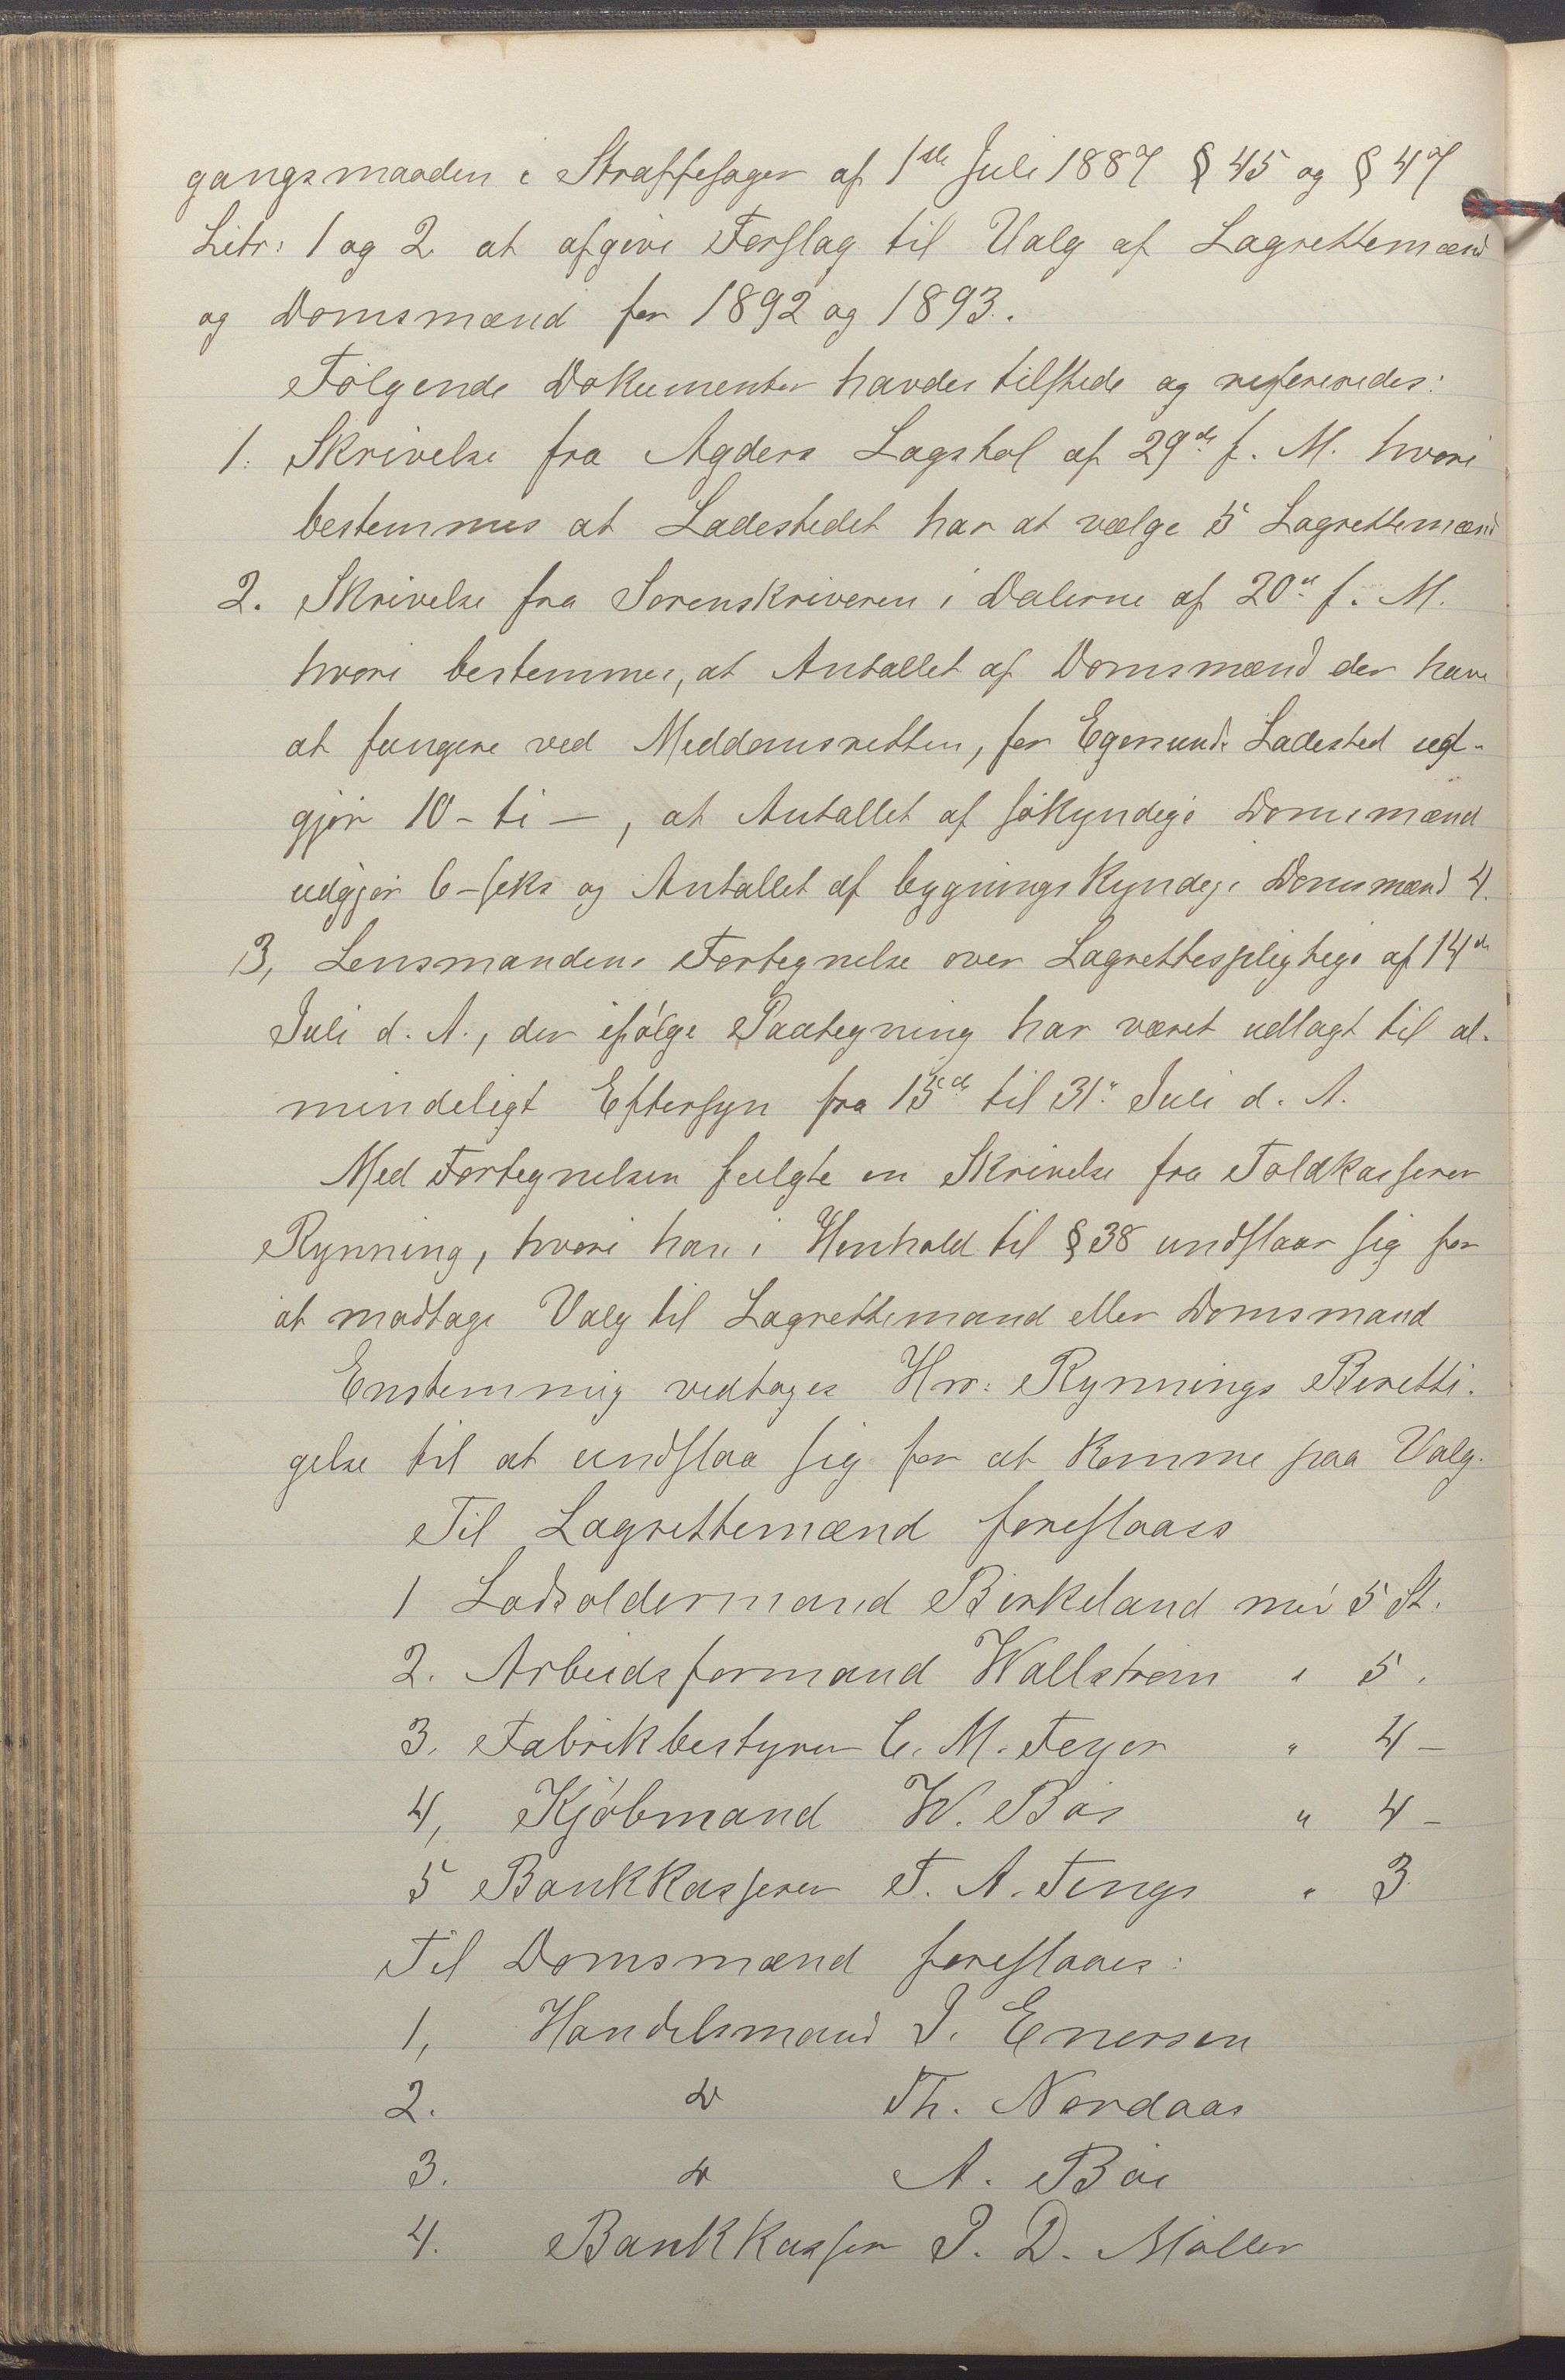 gangsmaaden i Straffesager af 1ste Juli 1887 § 45 og § 47
Litr: 1 og 2 at afgive Forslag til Valg af Lagrettemænd
og Domsmænd for 1892 og 1893.
Følgende Dokumenter havdes tilstede og refereredes:
1. Skrivelse fra Agders Lagstol af 29de f. M. hvori
bestemmes at Ladestedet har at vælge 5 Lagrettemænd
2. Skrivelse fra Sorenskriveren i Dalerne af 20de f. M.
hvori bestemmes, at Antallet af Domsmænd der have
at fungere ved Meddomsretten, for Egersunds Ladested ud-
gjør 10 - ti - , at Antallet af søkyndige Domsmænd
udgjør 6 - seks og Antallet af bygningskyndige Domsmænd 4.
3, Lensmandens Fortegnelse over Lagrettespligtige af 14de
Juli d. A., der ifølge Paategning har været udlagt til al-
mindeligt Eftersyn fra 15de til 31te Juli d. A.
Med Fortegnelsen fulgte en Skrivelse fra Toldkasserer
Rynning, hvori han i Henhold til § 38 undslaar sig for
at modtage Valg til Lagrettemand eller Domsmand
Enstemmig vedtages Hrr: Rynnings Beretti-
gelse til at undslaa sig for at komme paa Valg.
Til Lagrettemænd foreslaaes
1 Lodsoldermand Birkeland med 5 St.
2. Arbeidsformand Wallstrøm " 5 "
3. Fabrikbestyrer C. M. Feyer " 4 -
4, Kjøbmand W. Bøe " 4 -
5 Bankkasserer T. A. Tengs " 3
Til Domsmænd foreslaaes:
1, Handelsmand J. Enersen
2. do Th. Nordaas
3. do A. Bøe
4. Bankkasser J. D. Møller